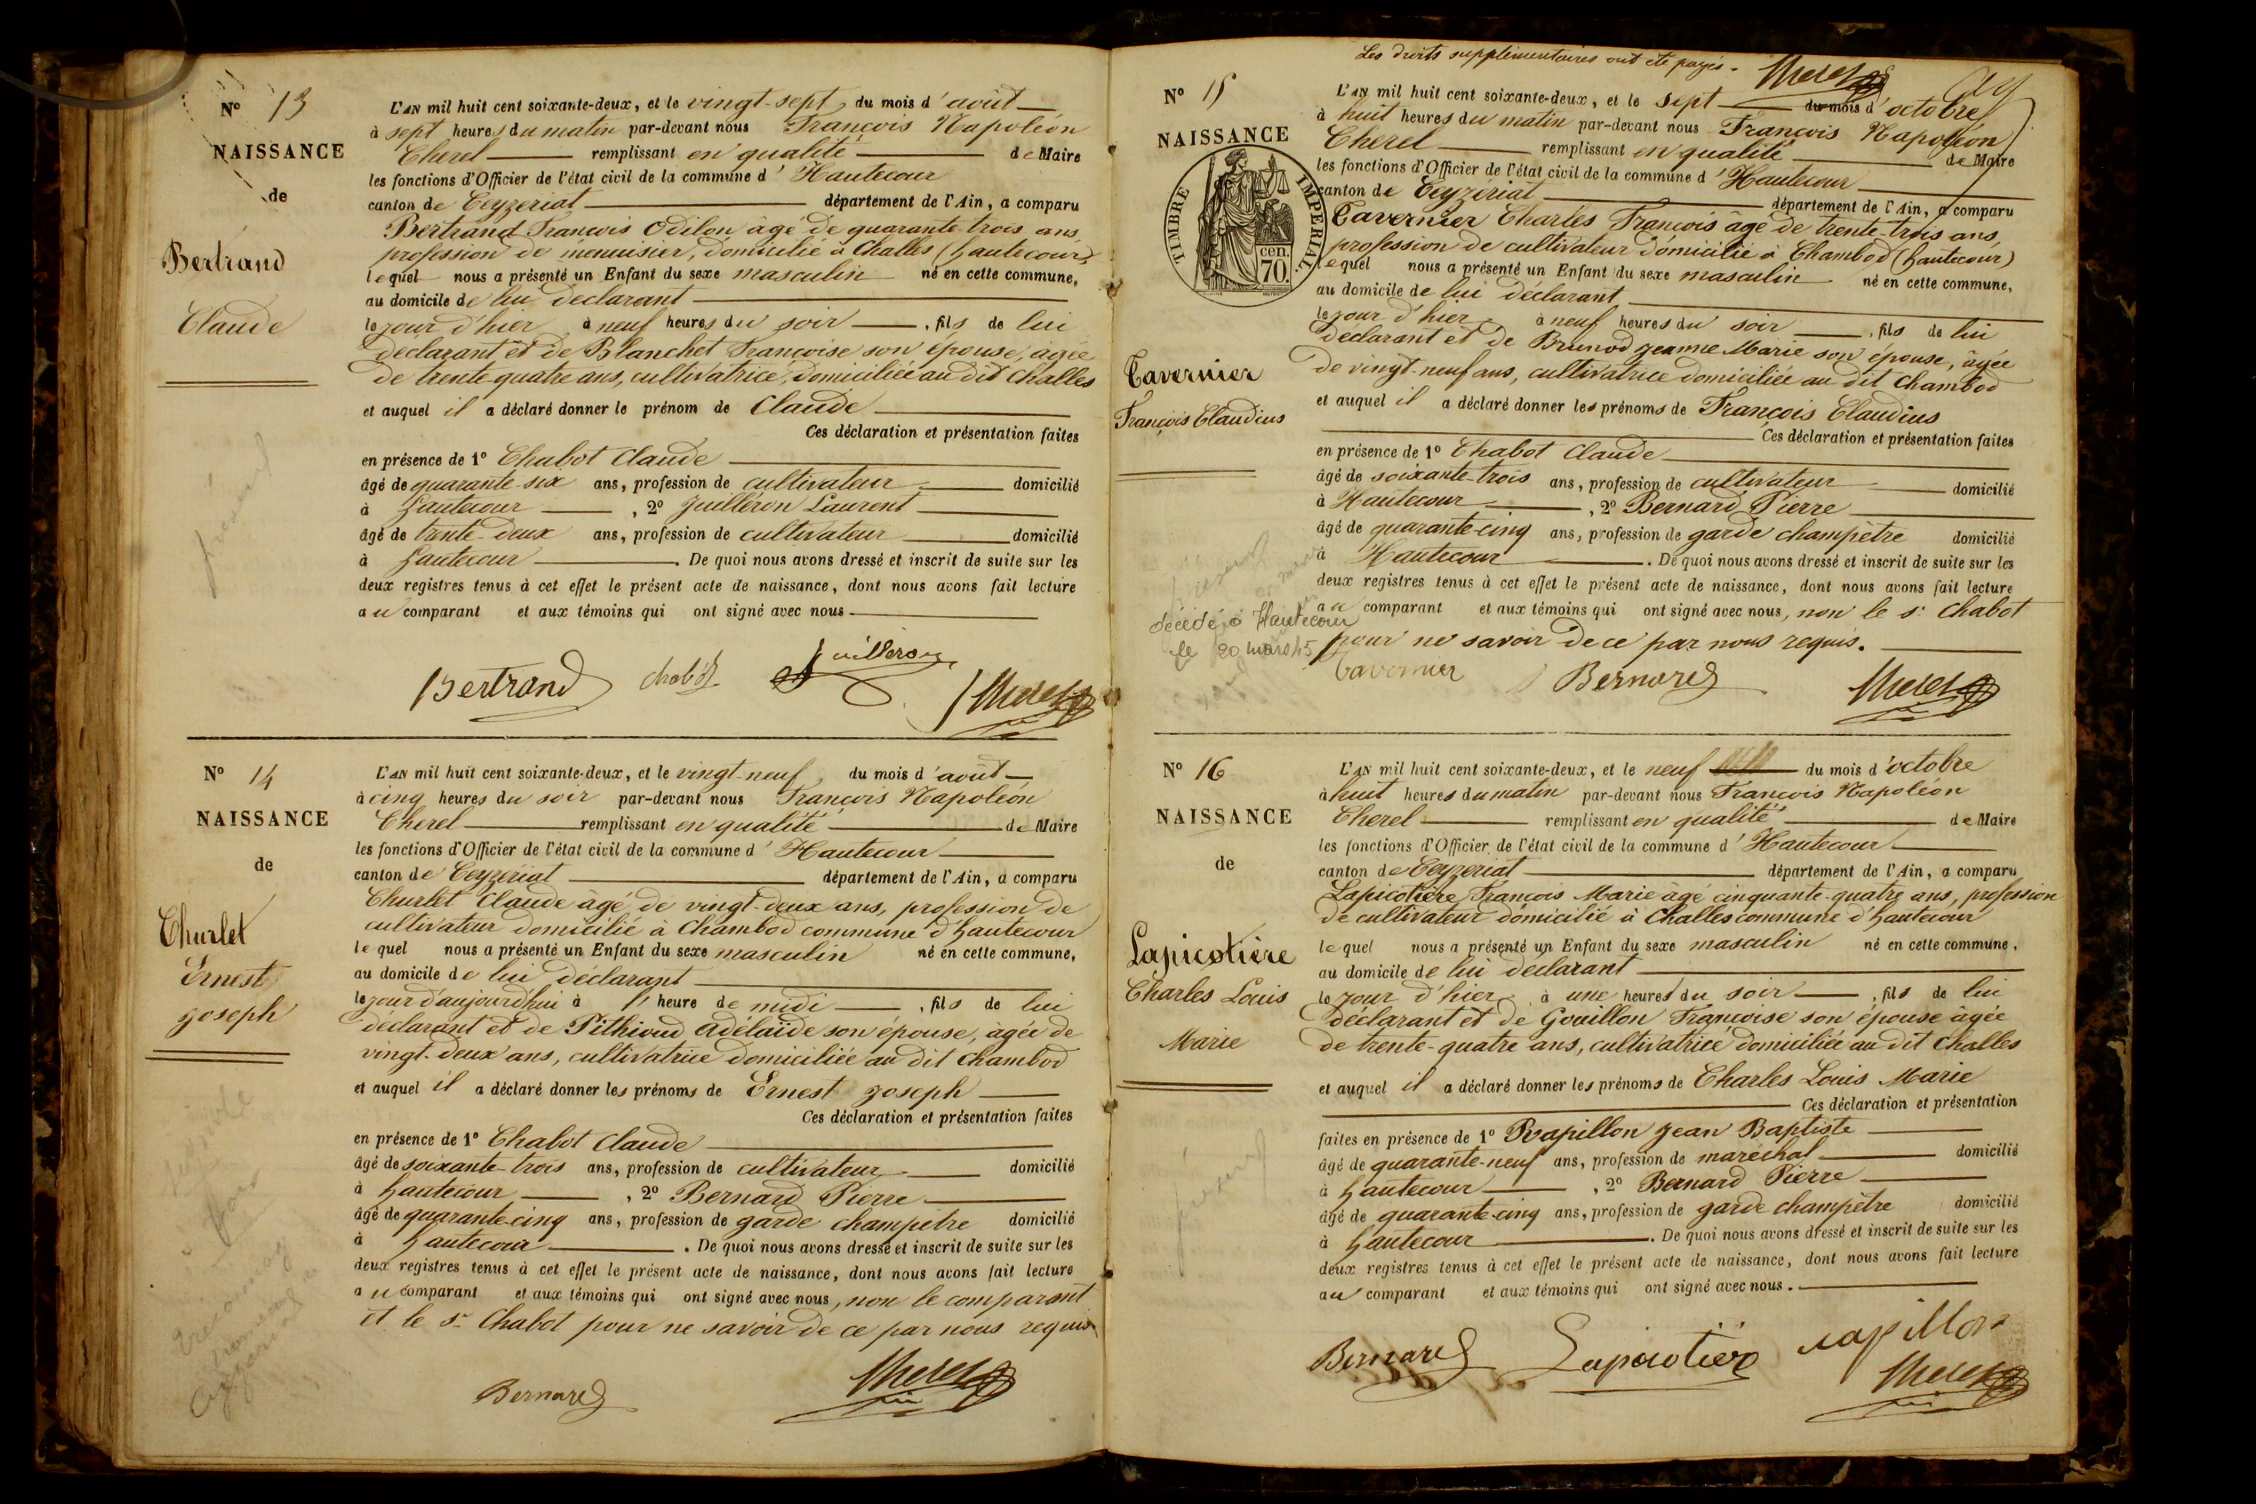 N° 13
NAISSANCE
de
Bertrand
Claude
L'AN mil huit cent soixante-deux, et le vingt-sept, du mois d'août
à sept heures du matin par-devant nous François Napoléon
Cherel remplissant en qualité de Maire
les fonctions d'Officier de l'état civil de la commune d'Hautecour
canton de Ceyzeriat département de l'Ain, a comparu
Bertrand François Odilon âgé de quarante-trois ans
profession de menuisier, domicilié à Challes (hautecour)
lequel nous a présenté un Enfant du sexe masculin né en cette commune,
au domicile de lui déclarant
le jour d'hier à neuf heures du soir, fils de lui
déclarant et de Blanchet Françoise son épouse, âgée
de trente quatre ans, cultivatrice, domiciliée au dit Challes
et auquel il a déclaré donner le prénom de Claude
Ces déclaration et présentation faites
en présence de 1° Chabot Claude
âgé de quarante-six ans, profession de cultivateur domicilié
à hautecour, 2° Juilleron Laurent
âgé de trente-deux ans, profession de cultivateur domicilié
à hautecour. De quoi nous avons dressé et inscrit de suite sur les
deux registres tenus à cet effet le présent acte de naissance, dont nous avons fait lecture
au comparant et aux témoins qui ont signé avec nous
Bertrand chabot Juilleron Cherel
N° 14
NAISSANCE
de
Churlet
Ernest
Joseph
L'AN mil huit cent soixante-deux, et le vingt-neuf, du mois d'août
à cinq heures du soir par-devant nous François Napoléon
Cherel remplissant en qualité de Maire
les fonctions d'Officier de l'état civil de la commune d'Hautecour
canton de Ceyzeriat département de l'Ain, a comparu
Churlet Claude âgé de vingt-deux ans, profession de
cultivateur domicilié à Chambod commune d'hautecour
lequel nous a présenté un Enfant du sexe masculin né en cette commune,
au domicile de lui déclarant
le jour d'aujourd'hui à l'heure de midi, fils de lui
déclarant et de Pithioud Adélaïde son épouse, âgée de
vingt-deux ans, cultivatrice domiciliée au dit Chambod
et auquel il a déclaré donner les prénoms de Ernest Joseph
Ces déclaration et présentation faites
en présence de 1° Chabot Claude
âgé de soixante-trois ans, profession de cultivateur domicilié
à hautecour, 2° Bernard Pierre
âgé de quarante-cinq ans, profession de garde champêtre domicilié
à hautecour. De quoi nous avons dressé et inscrit de suite sur les
deux registres tenus à cet effet le présent acte de naissance, dont nous avons fait lecture
au comparant et aux témoins qui ont signé avec nous, non le comparant
et le sr Chabot pour ne savoir de ce par nous requis
Bernard Cherel
Les droits supplémentaires ont été payés. Cherel
N° 15
NAISSANCE
TIMBRE IMPERIAL
70 cen.
Tavernier
François Claudius
décédé à Hautecour
le 20 mars 45
L'AN mil huit cent soixante-deux, et le sept du mois d'octobre
à huit heures du matin par-devant nous François Napoléon
Cherel remplissant en qualité de Maire
les fonctions d'Officier de l'état civil de la commune d'Hautecour
canton de Ceyzériat département de l'Ain, a comparu
Tavernier Charles François âgé de trente-trois ans
profession de cultivateur domicilié à Chambod (hautecour)
lequel nous a présenté un Enfant du sexe masculin né en cette commune,
au domicile de lui déclarant
le jour d'hier à neuf heures du soir, fils de lui
déclarant et de Brunod Jeanne Marie son épouse, âgée
de vingt-neuf ans, cultivatrice domiciliée au dit Chambod
et auquel il a déclaré donner les prénoms de François Claudius
Ces déclaration et présentation faites
en présence de 1° Chabot Claude
âgé de soixante-trois ans, profession de cultivateur domicilié
à Hautecour, 2° Bernard Pierre
âgé de quarante-cinq ans, profession de garde champêtre domicilié
à Hautecour. De quoi nous avons dressé et inscrit de suite sur les
deux registres tenus à cet effet le présent acte de naissance, dont nous avons fait lecture
au comparant et aux témoins qui ont signé avec nous, non le sr Chabot
pour ne savoir de ce par nous requis.
Tavernier Bernard Cherel
N° 16
NAISSANCE
de
Lapicotière
Charles Louis
Marie
L'AN mil huit cent soixante-deux, et le neuf du mois d'octobre
à huit heures du matin par-devant nous François Napoléon
Cherel remplissant en qualité de Maire
les fonctions d'Officier de l'état civil de la commune d'Hautecour
canton de Ceyzeriat département de l'Ain, a comparu
Lapicotière François Marie âgé cinquante-quatre ans, profession
de cultivateur domicilié à Challes commune d'hautecour
lequel nous a présenté un Enfant du sexe masculin né en cette commune,
au domicile de lui déclarant
le jour d'hier, à une heures du soir, fils de lui
déclarant et de Gouillon Françoise son épouse âgée
de trente-quatre ans, cultivatrice domiciliée au dit Challes
et auquel il a déclaré donner les prénoms de Charles Louis Marie
Ces déclaration et présentation
faites en présence de 1° Rapillon Jean Baptiste
âgé de quarante-neuf ans, profession de maréchal domicilié
à hautecour, 2° Bernard Pierre
âgé de quarante-cinq ans, profession de garde champêtre domicilié
à hautecour. De quoi nous avons dressé et inscrit de suite sur les
deux registres tenus à cet effet le présent acte de naissance, dont nous avons fait lecture
au comparant et aux témoins qui ont signé avec nous.
Bernard Lapicotière rapillon
Cherel